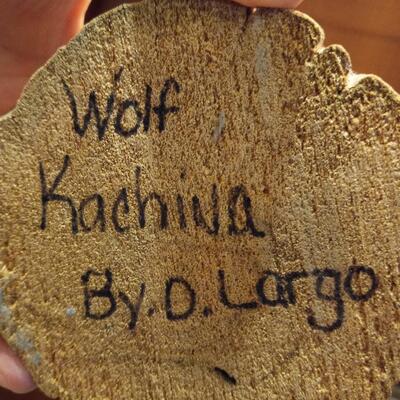 Wolf
Kachina
By. D. Largo